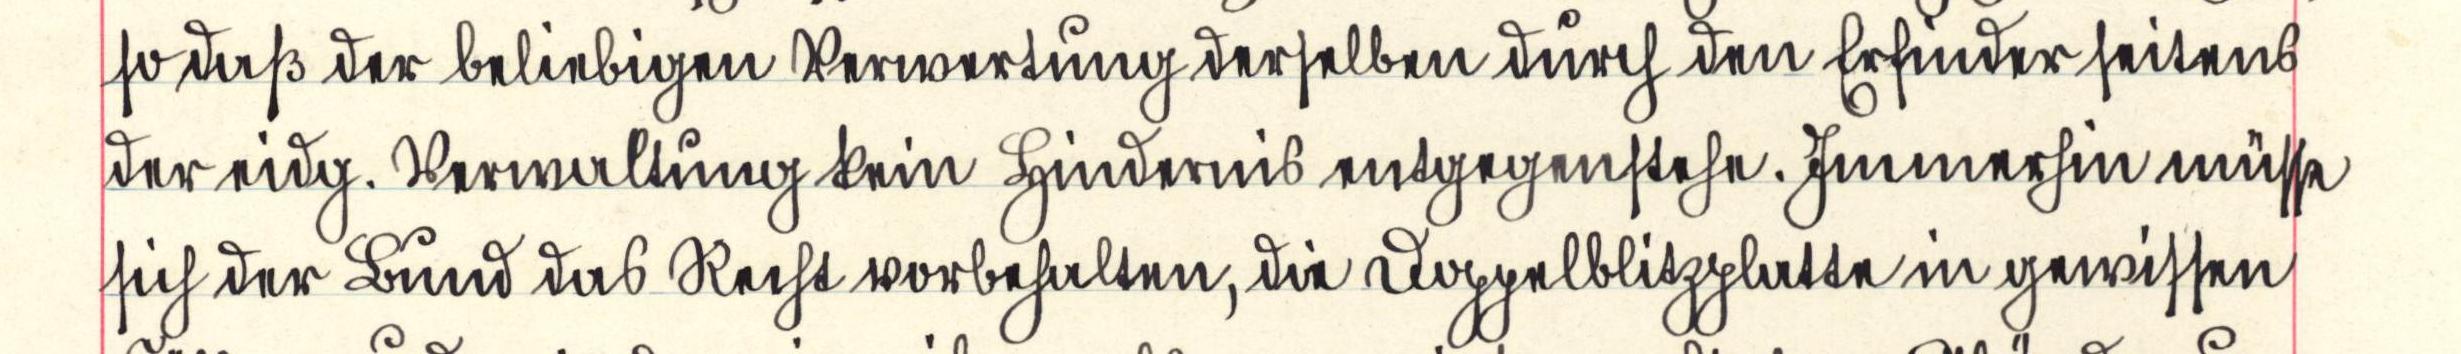 so daß der beliebigen Verwertung derselben durch den Erfinder seitens
der eidg. Verwaltung kein Hindernis entgegenstehe. Immerhin müsse
sich der Bund das Recht vorbehalten, die Doppelblitzplatte in gewissen